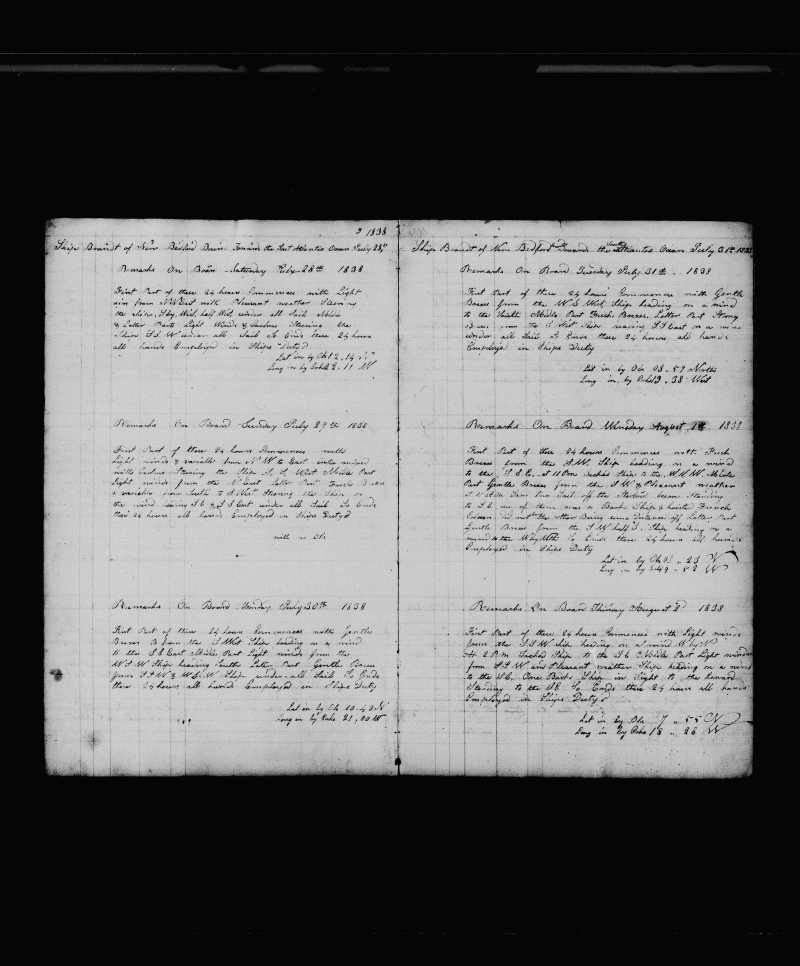 1838
Ship Brandt of New Bedford Towards the Atlantic Ocean July 28th
Remarks On Board Saturday July 28th 1838
First Part of these 24 hours Commences with Light
from N East with Pleasant weather Steering
the Ship S by West half West under all Sail Middle
& Latter Parts Light Winds & Steering the
Ship S S W under all Sail So Ends these 24 hours
all hands Employed in Ships Duty
Lat in by Ob 12 . 14 N
Long in by 2 . 11 W
Remarks On Board Sunday July 29th 1838
First Part of these 24 hours Commences with
Light winds & variable from N W to East
with Steering the Ship S S West Middle Part
Light winds from the N East Latter Part Fresh Breeze
& variable from South to S West Steering the Ship on
the wind S E & S S East under all Sail So Ends
these 24 hours all hands Employed in Ships Duty
with n Ob
Remarks On Board Monday July 30th 1838
First Part of these 24 hours Commences with Gentle
Breezes from the S West Ship heading on a wind
to the S S East Middle Part Light winds from the
W S W Ship heading South Latter Part Gentle Breeze
from S S W & W S W Ship under all Sail So Ends
these 24 hours all hands Employed in Ships Duty
Lat in by Ob 10 . 40 N
Long in by 21 . 00 W
Ship Brandt of New Bedford Towards the South Atlantic Ocean July 31st 1838
Remarks On Board Tuesday July 31th 1838
First Part of these 24 hours Commences with Gentle
Breeze from the W S West Ship heading on a wind
to the South Middle Part Fresh Breezes Latter Part Strong
from the S West Ship S S East on a wind
under all Sail So Ends these 24 hours all hands
Employed in Ships Duty
Lat in by Ob 08 . 57 North
Long in by 19 . 38 West
Remarks On Board August 1st 1838
First Part of these 24 hours Commences with Fresh
Breeze from the S W Ship heading on a wind
to the S S E at 11 Pm tacked Ship to the W N W Middle
Part Gentle Breeze from the S W & Pleasant weather
at Saw two Sail off the beam Standing
to S E one of them was a Barke Ship & hoisted French
the other Being some distance off Latter Part
Gentle Breeze from the S W half S Ship heading on a
wind to the So Ends these 24 hours all hands
Employed in Ships Duty
Lat in by Ob 23 N
Long in by 19 . 52 W
Remarks On Board August 2d 1838
First Part of these 24 hours Commences with Light winds
from the S S W Ship heading on a wind W by N
At 2 P.m. Tacked Ship to the S E Middle Part Light winds
from S S W and Pleasant weather Ship heading on a wind
to the S E One Barke Ship in Sight to the Leward
Standing to the SE So Ends these 24 hours all hands
Employed in Ships Duty
Lat in by Ob 7 . 55 N
Long in by 18 . 28 W